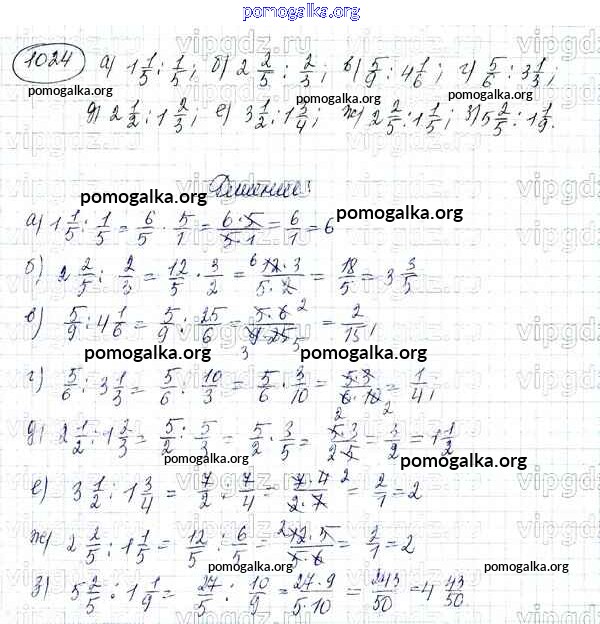 pomogalka.org
1024 а) 1 1/5 : 1/5; б) 2 2/5 : 2/3; в) 5/9 : 4 1/6; г) 5/6 : 3 1/3;
pomogalka.org pomogalka.org
д) 2 1/2 : 1 2/3; е) 3 1/2 : 1 3/4; ж) 2 2/5 : 1 1/5; з) 5 2/5 : 1 1/9.
Решение:
pomogalka.org pomogalka.org
а) 1 1/5 : 1/5 = 6/5 · 5/1 = 6·5/5·1 = 6/1 = 6
б) 2 2/5 : 2/3 = 12/5 · 3/2 = 6 12·3/5·2 = 18/5 = 3 3/5
в) 5/9 : 4 1/6 = 5/9 : 25/6 = 5·6 2/3 9·25 5 = 2/15,
pomogalka.org pomogalka.org
г) 5/6 : 3 1/3 = 5/6 : 10/3 = 5/6 · 3/10 = 5·3/6·10 2 2 = 1/4,
д) 2 1/2 : 1 2/3 = 5/2 : 5/3 = 5/2 · 3/5 = 5·3/2·5 = 3/2 = 1 1/2
pomogalka.org pomogalka.org
е) 3 1/2 : 1 3/4 = 7/2 : 7/4 = 7·4 2/2·7 = 2/1 = 2
ж) 2 2/5 : 1 1/5 = 12/5 : 6/5 = 2 12·5/5·6 = 2/1 = 2
pomogalka.org pomogalka.org
з) 5 2/5 : 1 1/9 = 27/5 : 10/9 = 27·9/5·10 = 243/50 = 4 43/50.